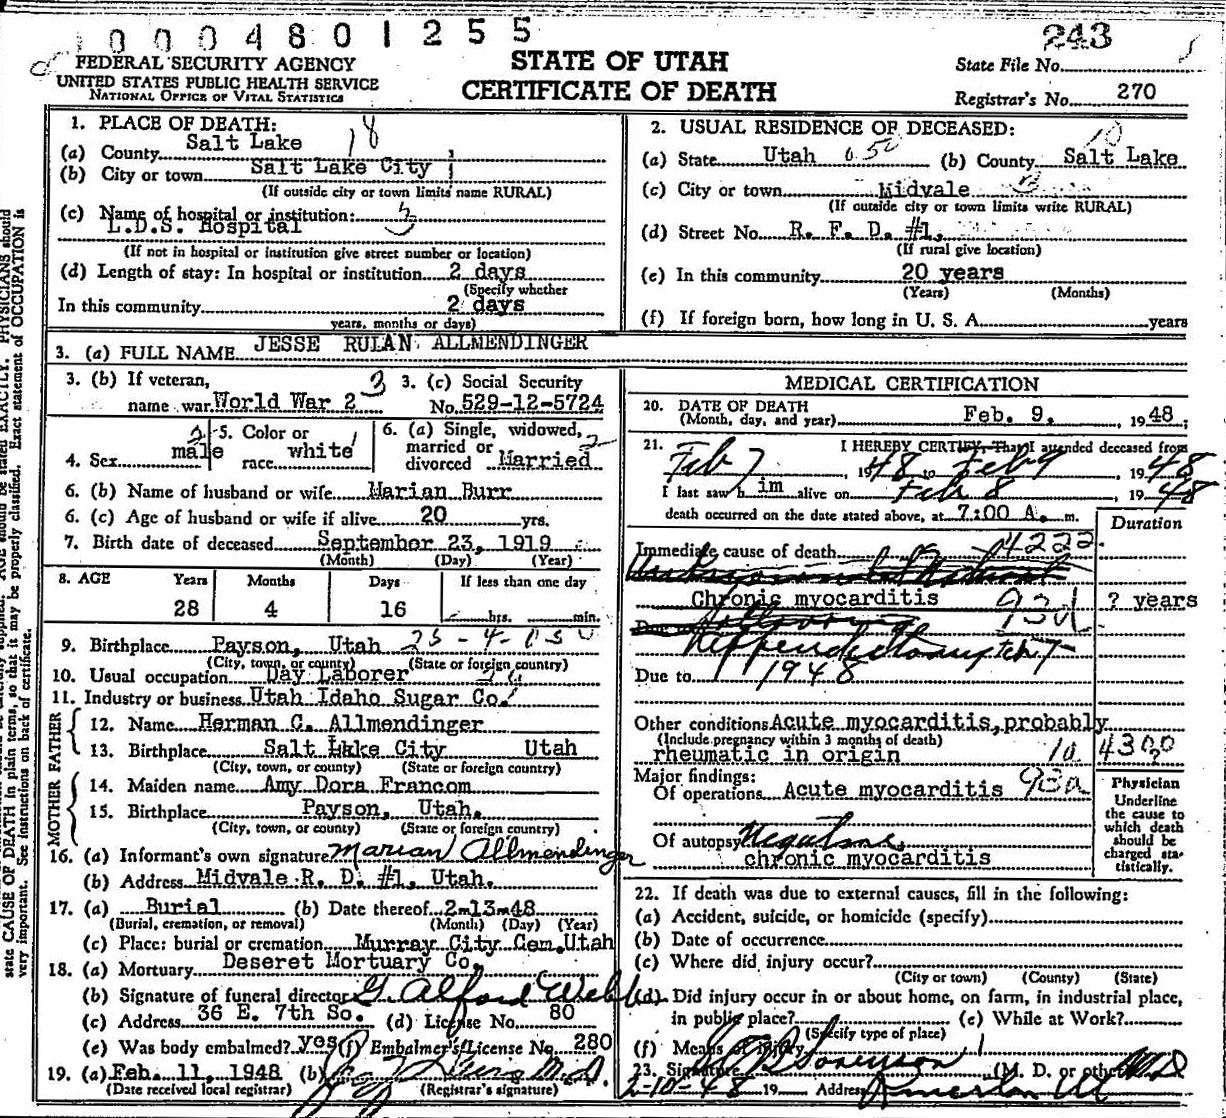 0 0 0 4 8 0 1 2 5 5
243
FEDERAL SECURITY AGENCY
UNITED STATES PUBLIC HEALTH SERVICE
NATIONAL OFFICE OF VITAL STATISTICS
STATE OF UTAH
CERTIFICATE OF DEATH
State File No.
Registrar's No. 270
1. PLACE OF DEATH:
(a) County Salt Lake 18
(b) City or town Salt Lake City
(If outside city or town limits name RURAL)
(c) Name of hospital or institution: 3
L.D.S. Hospital
(If not in hospital or institution give street number or location)
(d) Length of stay: In hospital or institution 2 days
(Specify whether
In this community 2 days
years, months or days)
2. USUAL RESIDENCE OF DECEASED:
(a) State Utah 050 (b) County Salt Lake 10
(c) City or town Midvale
(If outside city or town limits write RURAL)
(d) Street No. R. F. D. #1,
(If rural give location)
(e) In this community 20 years
(Years) (Months)
(f) If foreign born, how long in U. S. A. years
3. (a) FULL NAME JESSE RULAN ALLMENDINGER
3. (b) If veteran, 3
name war World War 2
3. (c) Social Security
No. 529-12-5724
4. Sex male
5. Color or
race white
6. (a) Single, widowed,
married or
divorced Married
6. (b) Name of husband or wife Marian Burr
6. (c) Age of husband or wife if alive 20 yrs.
7. Birth date of deceased September 23, 1919
(Month) (Day) (Year)
8. AGE Years Months Days If less than one day
28 4 16 hrs. min.
9. Birthplace Payson, Utah
(City, town, or county) (State or foreign country)
10. Usual occupation Day Laborer
11. Industry or business Utah Idaho Sugar Co.
FATHER
12. Name Herman C. Allmendinger
13. Birthplace Salt Lake City Utah
(City, town, or county) (State or foreign country)
MOTHER
14. Maiden name Amy Dora Francom
15. Birthplace Payson, Utah.
(City, town, or county) (State or foreign country)
16. (a) Informant's own signature Marian Allmendinger
(b) Address Midvale R. D. #1, Utah.
17. (a) Burial (b) Date thereof 2-13-48
(Burial, cremation, or removal) (Month) (Day) (Year)
(c) Place: burial or cremation Murray City Cem. Utah
18. (a) Mortuary Deseret Mortuary Co.
(b) Signature of funeral director G. Alford Webb
(c) Address 36 E. 7th So. (d) License No. 80
(e) Was body embalmed? yes (f) Embalmer's License No. 280
19. (a) Feb. 11, 1948 (b) M.D.
(Date received local registrar) (Registrar's signature)
MEDICAL CERTIFICATION
20. DATE OF DEATH
(Month, day, and year) Feb. 9, 1948;
21. I HEREBY CERTIFY, That I attended deceased from
Feb 7, 1948 to Feb 9, 1948
I last saw him alive on Feb 8, 1948
death occurred on the date stated above, at 7:00 A. m.
Duration
Immediate cause of death 4222
Chronic myocarditis 93d ? years
Due
following
Appendectomy Feb 7
Due to 1948
Other conditions Acute myocarditis, probably
(Include pregnancy within 3 months of death)
rheumatic in origin 10 4300
?
Major findings:
Of operations Acute myocarditis 93a
Of autopsy Negative,
chronic myocarditis
Physician
Underline
the cause to
which death
should be
charged sta-
tistically.
22. If death was due to external causes, fill in the following:
(a) Accident, suicide, or homicide (specify)
(b) Date of occurrence
(c) Where did injury occur?
(City or town) (County) (State)
(d) Did injury occur in or about home, on farm, in industrial place,
in public place? (e) While at Work?
(Specify type of place)
(f) Means of injury
23. Signature Sorenson (M. D. or other) M D
2-10-48 19 Address
state CAUSE OF DEATH in plain terms, so that it may be properly classified. Exact statement of OCCUPATION is
very important. See instructions on back of certificate.